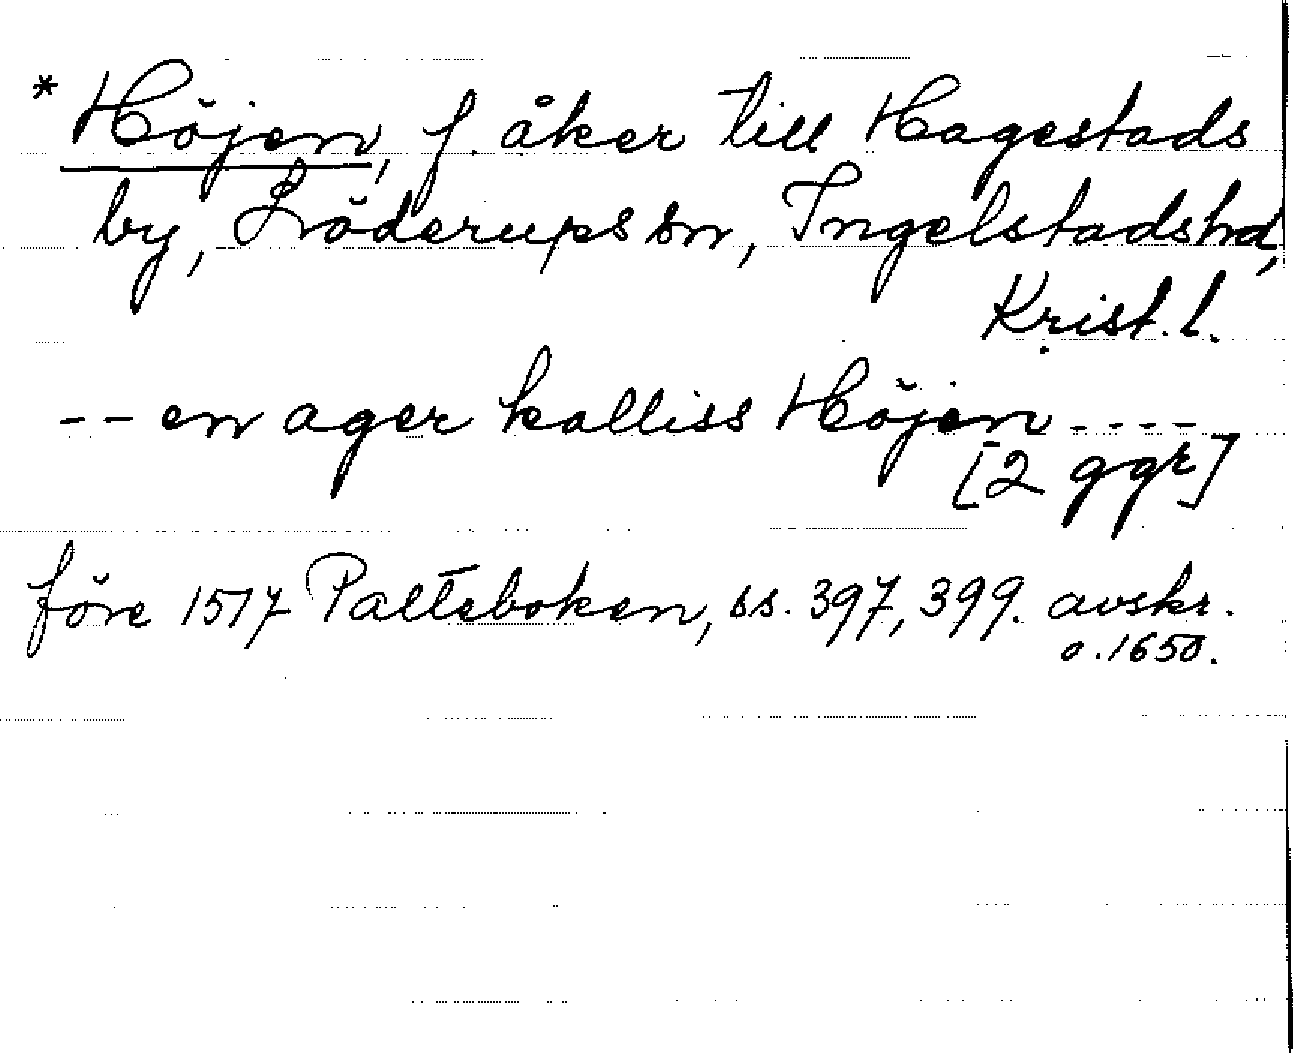 * Höjen, f. åker till Hagestads
by, Löderups sn, Ingelstads hd,
Krist. l.
-- en ager kalliss Höjen ----
[2 ggr]
före 1517 Palteboken, ss. 397, 399. avskr.
o. 1650.